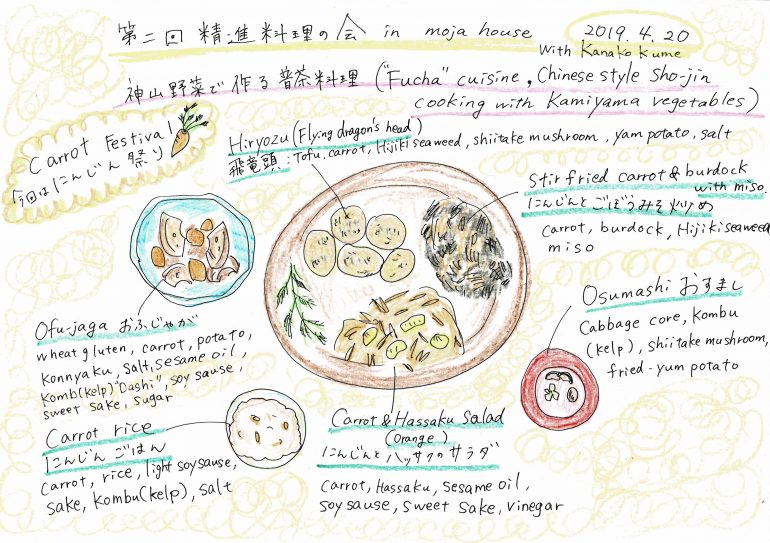 第二回 精進料理の会 in moja house
2019.4.20
With Kanako Kume
神山野菜で作る普茶料理 ("Fucha" cuisine, Chinese style Sho-jin
cooking with Kamiyama vegetables)
Carrot Festival
今回はにんじん祭り
Hiryozu (Flying dragon's head)
飛竜頭 : Tofu, carrot, Hijiki seaweed, shiitake mushroom, yam potato, salt
Stir fried carrot & burdock
with miso.
にんじんとごぼうみそ炒め
carrot, burdock, Hijiki seaweed
miso
Ofu-jaga おふじゃが
wheat gluten, carrot, potato,
Konnyaku, salt, sesame oil,
Komb(kelp)"Dashi", soy sause,
sweet sake, sugar
Osumashi おすまし
Cabbage core, Kombu
(kelp), shiitake mushroom,
fried-yum potato
Carrot rice
にんじんごはん
Carrot, rice, light soysause,
sake, Kombu(kelp), salt
Carrot & Hassaku Salad
(Orange)
にんじんとハッサクのサラダ
carrot, Hassaku, sesame oil,
soy sause, sweet sake, vinegar